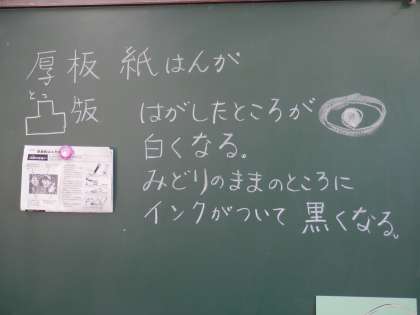 厚板紙はんが
とつ
凸版
はがしたところが
白くなる。
みどりのままのところに
インクがついて黒くなる。